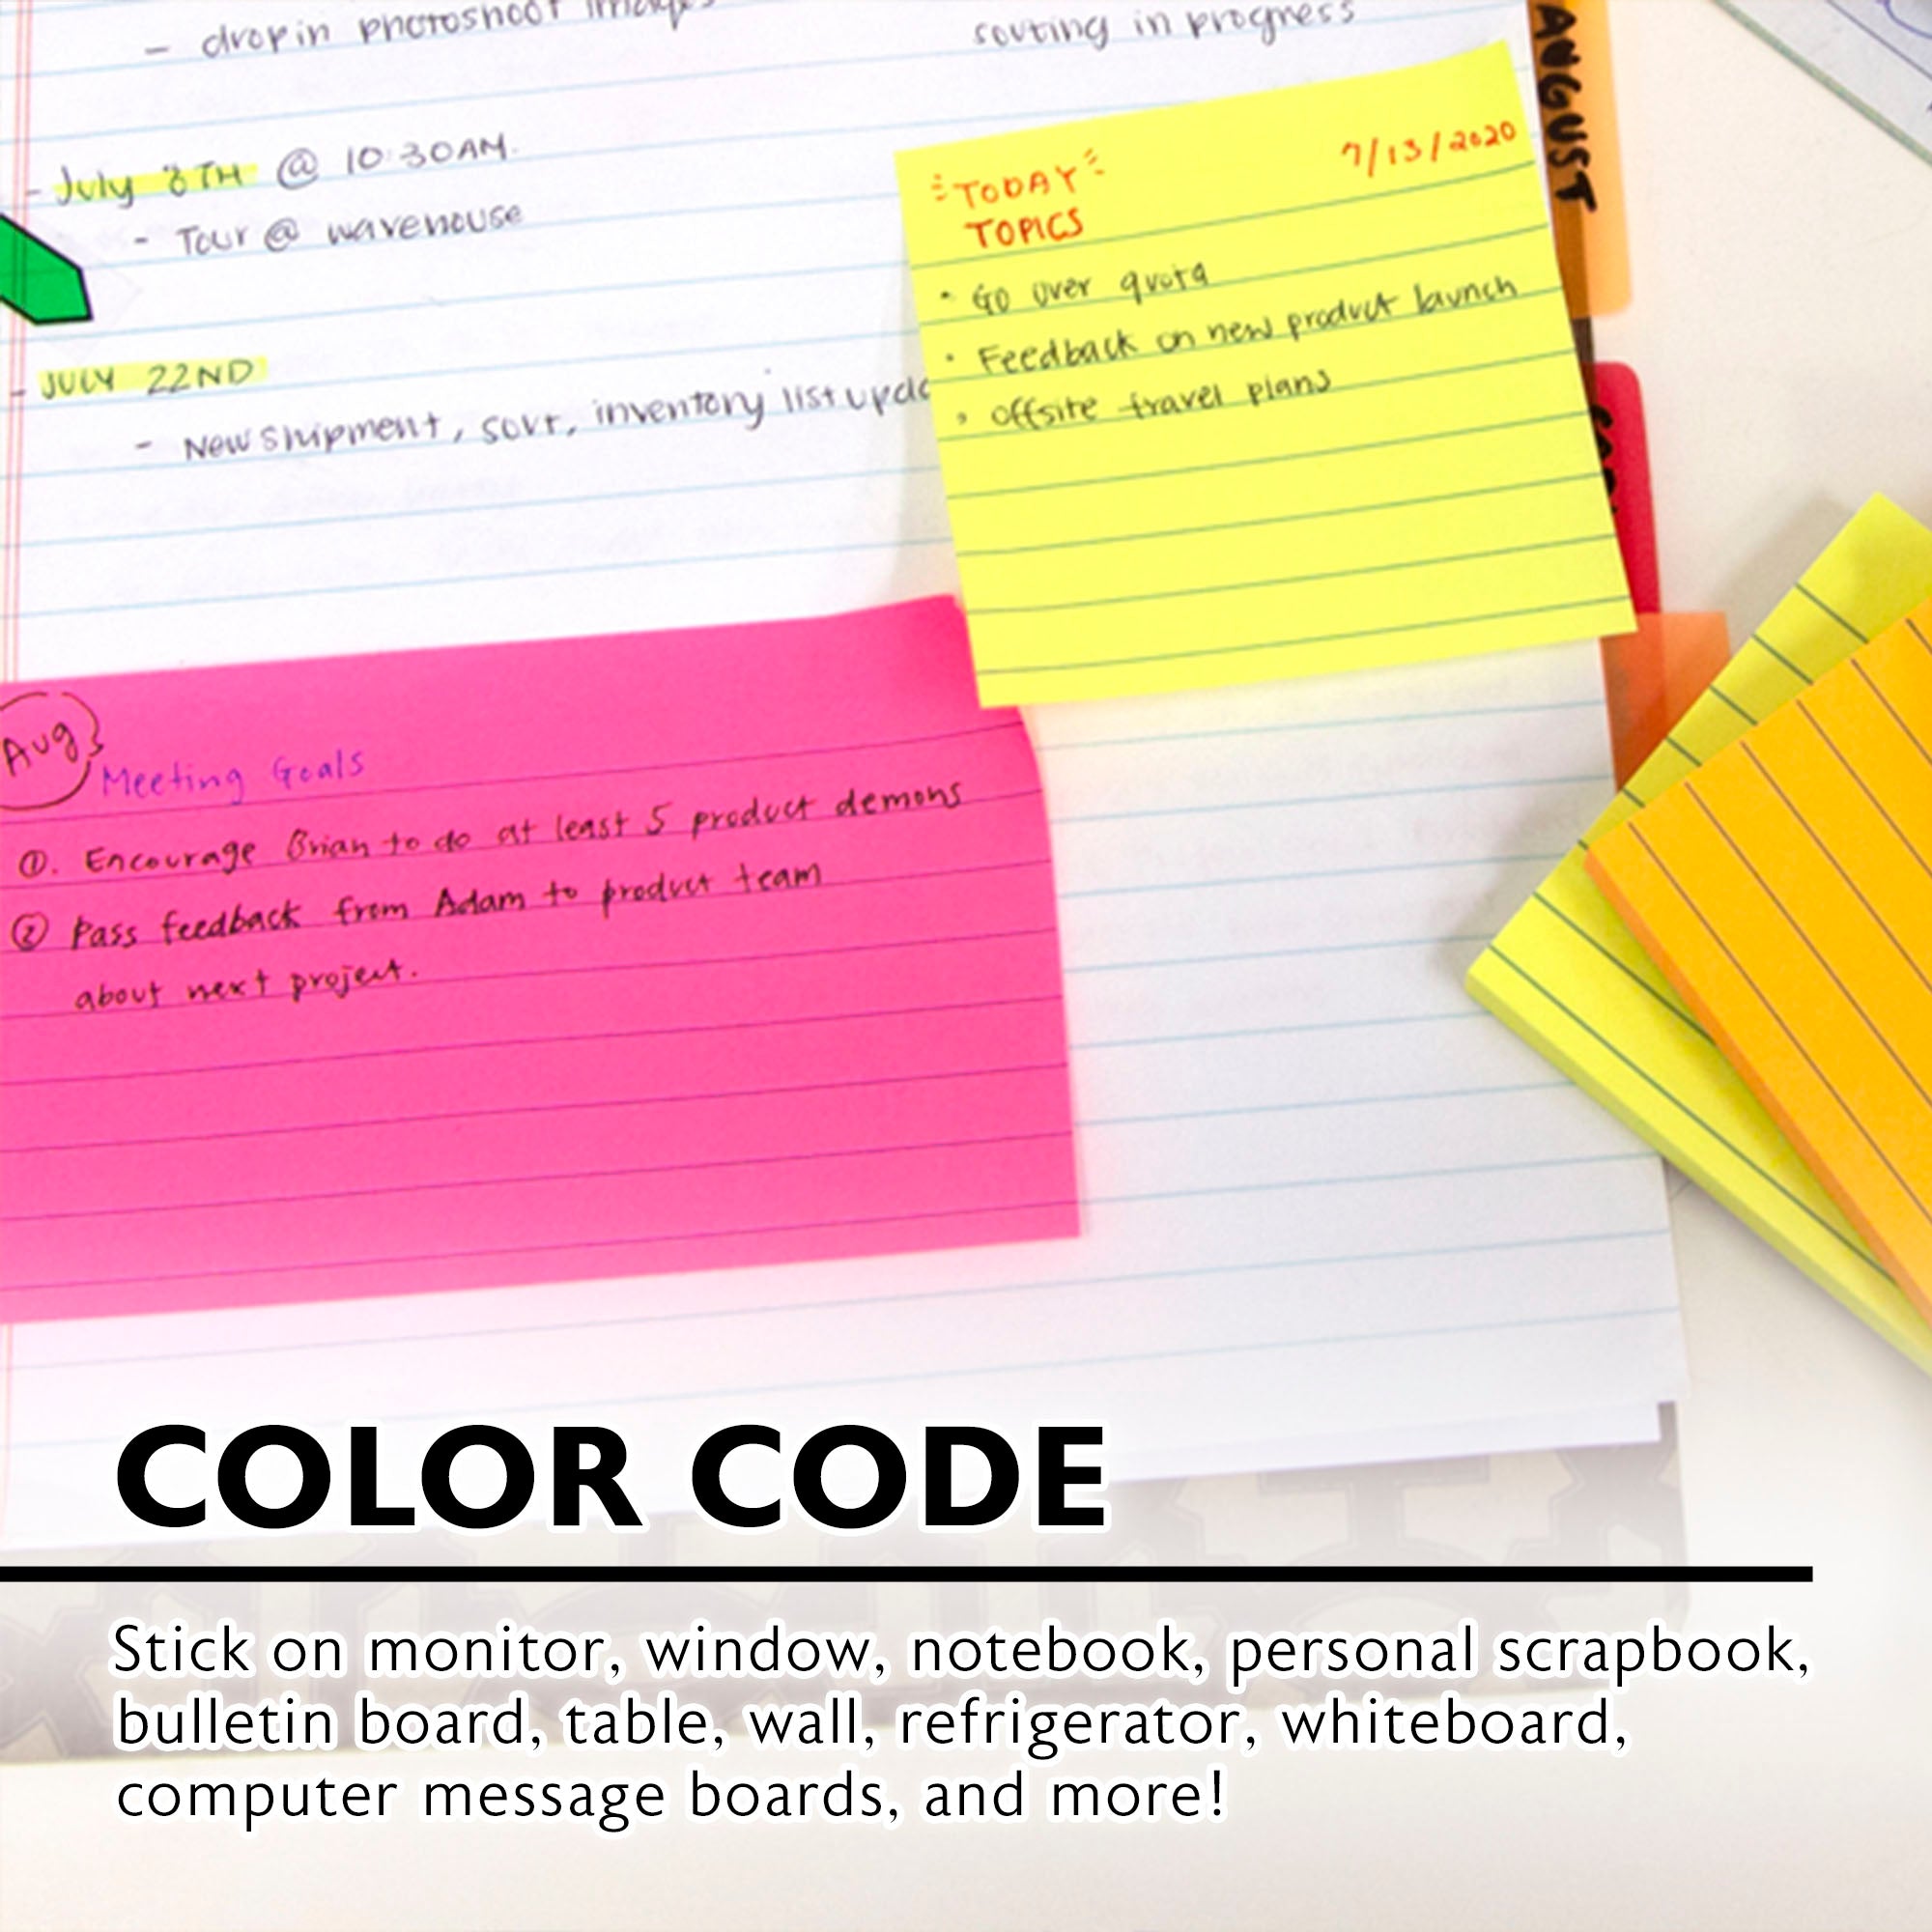 - drop in photoshoot images
sorting in progress
- July 8TH @ 10:30AM.
- Tour @ warehouse
- JULY 22ND
- New shipment, sort, inventory list upda
AUGUST
TODAY 7/13/2020
TOPICS
• Go over quota
• Feedback on new product launch
• Offsite travel plans
Aug
Meeting Goals
①. Encourage Brian to do at least 5 product demons
② Pass feedback from Adam to product team
about next project.
COLOR CODE
Stick on monitor, window, notebook, personal scrapbook,
bulletin board, table, wall, refrigerator, whiteboard,
computer message boards, and more!